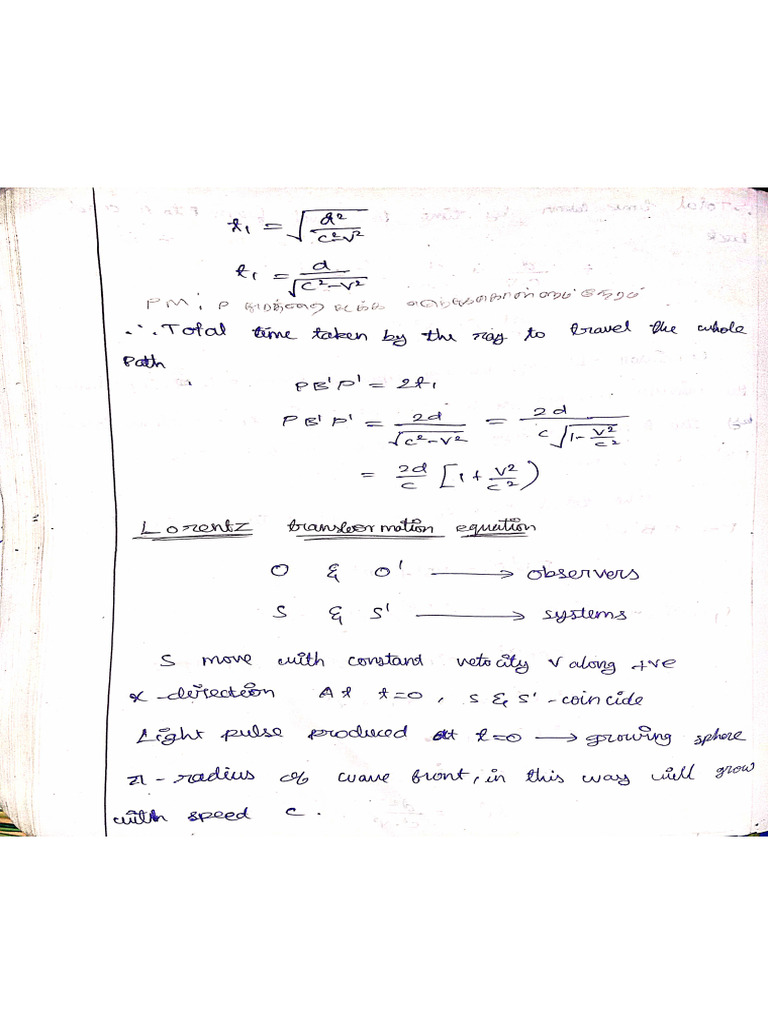 t₁ = √(d²/(c²-v²))
t₁ = d/√(c²-v²)
PM, P
∴ Total time taken by the ray to travel the whole
Path
PB'P' = 2t₁
PB'P' = 2d/√(c²-v²) = 2d/(c√(1-v²/c²))
= 2d/c [1+v²/c²)
Lorentz transformation equation
O & O' ⟶ observers
S & S' ⟶ systems
S move with constant velocity v along +ve
x-direction At t=0, S & S' - coincide
Light pulse produced at t=0 → growing sphere
r - radius of wave front, in this way will grow
with speed c.